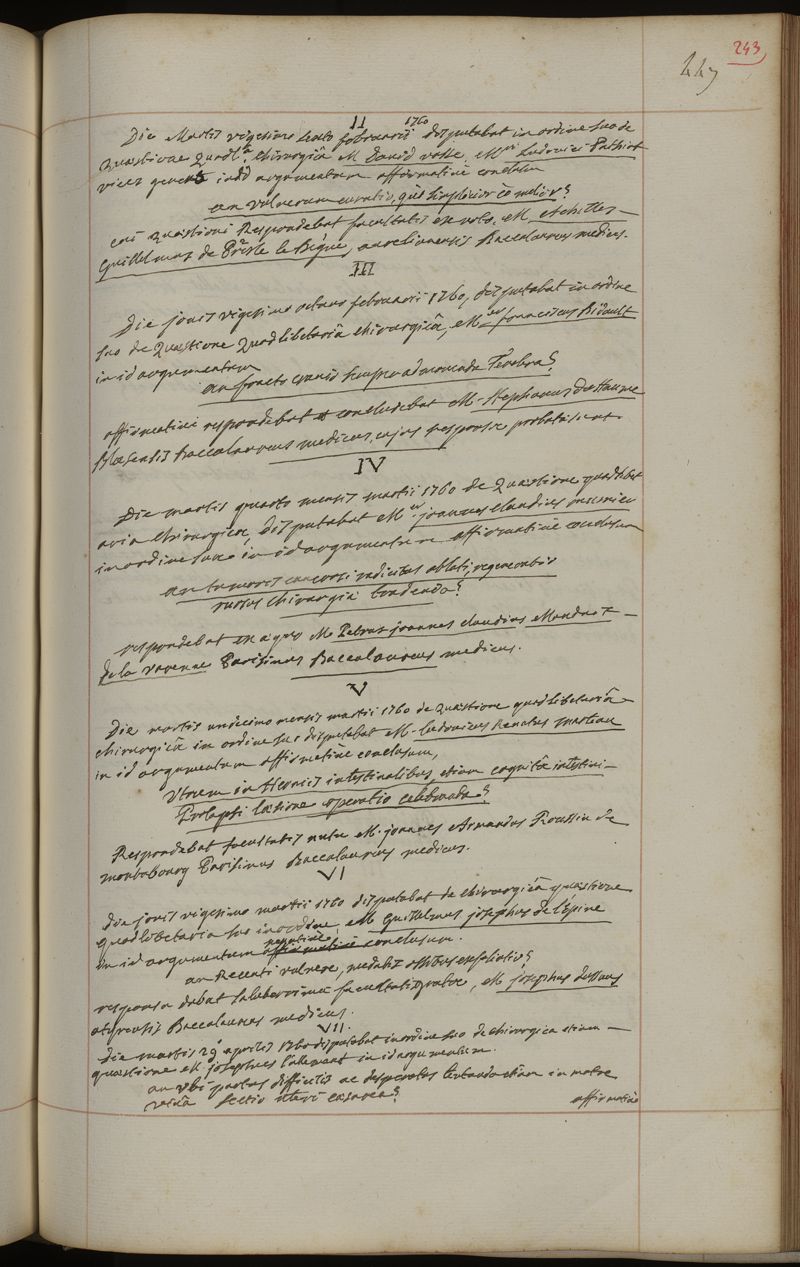 243
II
Die Martis vigesimo sexto februarii 1760 disputabat in ordine suo de
Quæstione Quodl.â Chirurgicâ M. David vasse, M.um Ludovici
vices gerens in id argumentum affirmativè conclusum
an vulnerum curatio, quò simplicior eò melior?
cui quæstioni Respondebat facultatis ex voto, M. Achilles
Guillelmus de le Begue, aurelianensis Baccalaureus medicus.
III
Die jovis vigesimo octavo februarii 1760, disputabat in ordine
suo de Quæstione Quodlibetariâ chirurgicâ, M. franciscus Bidault
in id argumentum
an fracto cranio semper admovenda Terebra?
affirmativè respondebat et concludebat M. Stephanus
Blæsensis Baccalaureus medicus, ejus responsa probata sunt.
IV
Die martis quarto mensis martii 1760 de Quæstione quodlibet
aria chirurgicæ, disputabat M. joannes claudius
in ordine suo in id argumentum affirmativè conclusum
an tumoris cancrosi radicitus ablati, regeneratio
rursus chirurgiâ tentanda?
respondebat M. Petrus joannes claudius Mauduit
de la varenne Parisinus Baccalaureus medicus.
V
Die martis undecimo mensis martii 1760 de Quæstione quodlibetariâ
chirurgicâ in ordine suo disputabat M. Ludovicus Renatus marteau
in id argumentum affirmativè conclusum,
Utrum in Herniis intestinalibus, etiam cognitâ intestini
Prolapsi læsione operatio celebranda?
Respondebat facultatis nutu M. joannes Armandus Roussin de
montabourg Parisinus Baccalaureus medicus.
VI
Die jovis vigesimo martii 1760 disputabat de chirurgicâ quæstione
quodlibetaria suo in ordine, M. Guillelmus josephus de l'épine
in id argumentum affirmativè negativè conclusum.
an Recenti vulnere, nudatis ossibus exfoliatio?
responsa dabat saluberrimæ facultatis M. josephus
Baccalaureus medicus.
VII.
Die martis 29â aprilis 1760 disputabat in ordine suo de chirurgica etiam
quæstione M. josephus l'allemant in id argumentum.
an ubi partus difficilis ac desperatus tentanda etiam in matre
vivâ sectio uteri cæsarea?
affirmativè